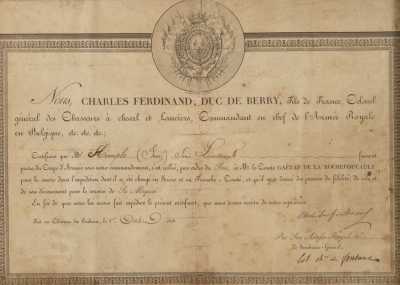 Nous, CHARLES FERDINAND, DUC DE BERRY, Fils de France, Colonel
général des Chasseurs à cheval et Lanciers, Commandant en chef de l'Armée Royale
en Belgique, etc. etc. etc.;
Certifions que Mr faisant
partie du Corps d'Armée sous notre commandement, s'est rallié, par ordre du Roi, à Mr le Comte GAËTAN DE LA ROCHEFOUCAULD
pour le suivre dans l'expédition dont il a été chargé en Suisse et en Franche-Comté, et qu'il a donné des preuves de fidélité, de zèle, et
de son dévouement pour le service de Sa Majesté.
En foi de quoi nous lui avons fait expédier le présent certificat, que nous avons revêtu de notre signature.
Fait au Château des Tuileries, le 1er
Charles Ferdinand
Par Son Altesse Royale
Le Secrétaire-Général,